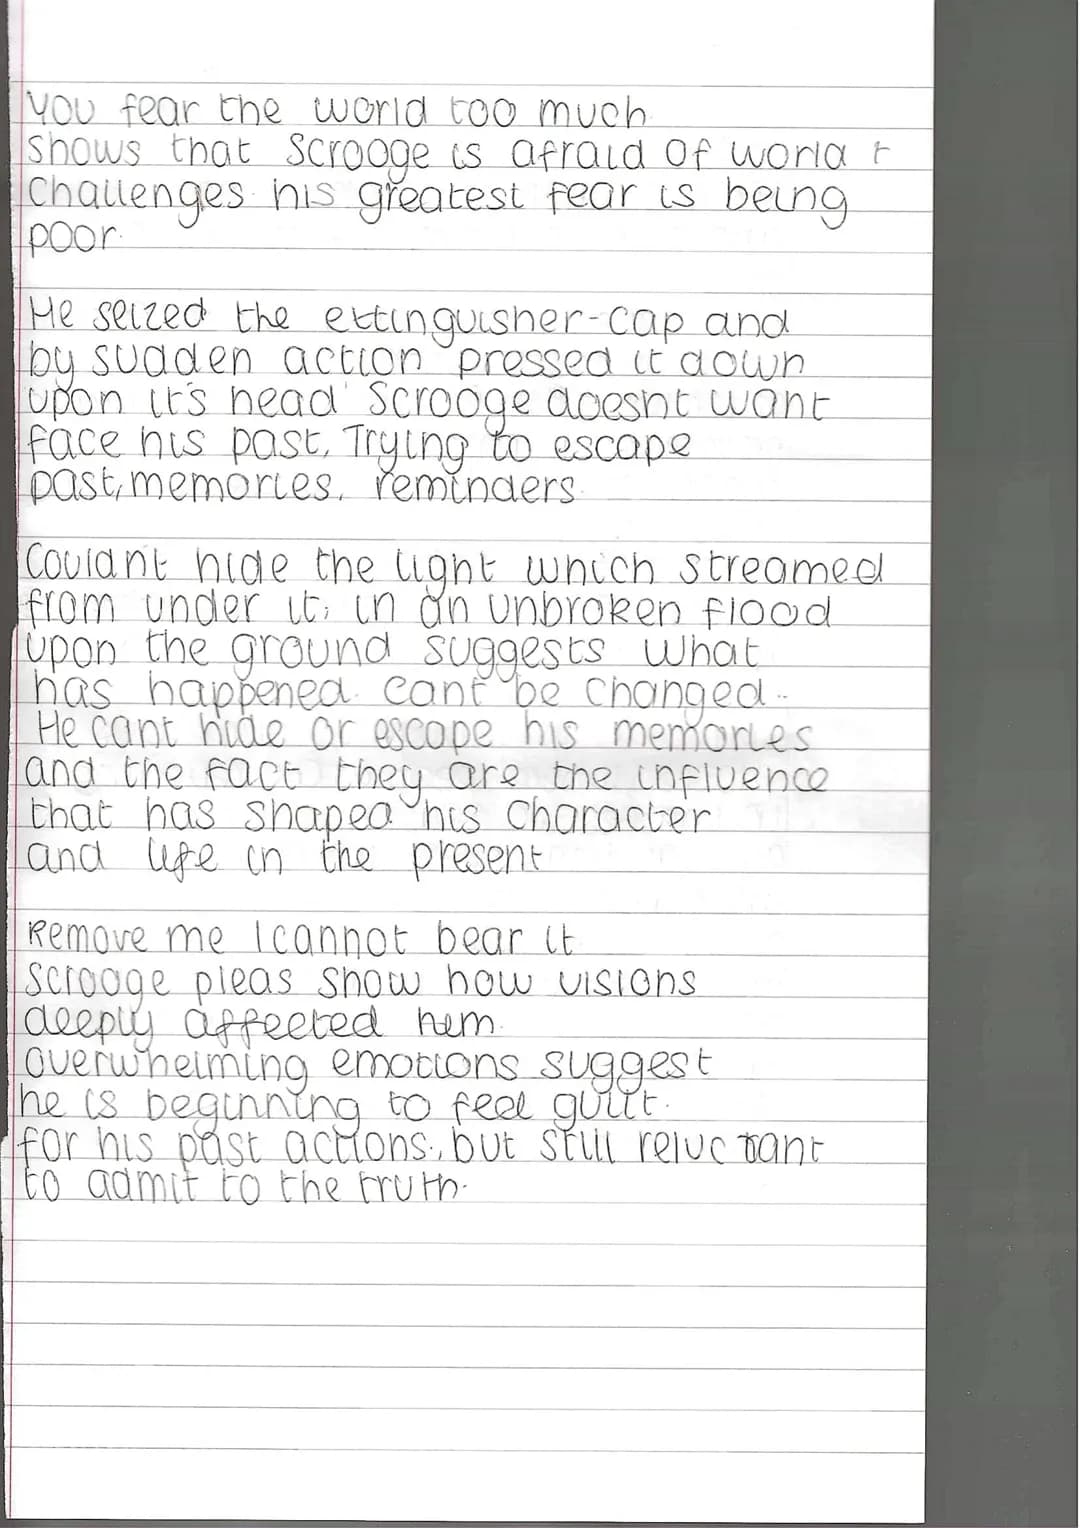 You fear the world too much
shows that Scrooge is afraid of world +
Challenges his greatest fear is being
poor.
He seized the extinguisher-cap and
by sudden action pressed it down
upon it's head' Scrooge doesnt want
face his past. Trying to escape
past, memories, reminders
Couldn't hide the light which streamed
from under it; in an unbroken flood
upon the ground suggests what
has happened cant be changed..
He cant hide or escape his memories
and the fact they are the influence
that has shaped his character
and life in the present
Remove me I cannot bear it
Scrooge pleas show how visions
deeply affected hem.
Overwhelming emotions suggest
he is beginning to feel guilt.
for his past actions., but still reluctant
to admit to the truth.